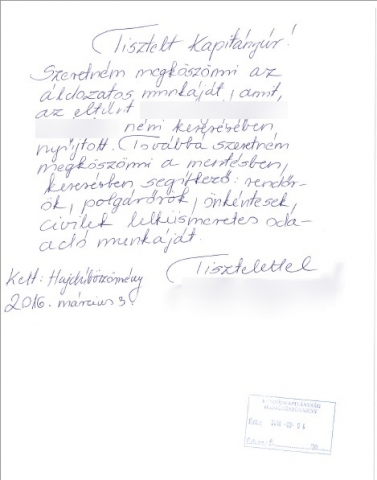 Tisztelt Kapitányúr!
Szeretném megköszönni az
áldozatos munkáját, amit,
az eltűnt
néni keresésében,
nyújtott. Továbbá szeretném
megköszönni a mentésben,
keresésben segítkező: rendőr-
ök, polgárőrök, önkéntesek,
civilek lelkiismeretes oda-
adó munkáját.
Tisztelettel
Kelt: Hajdúböszörmény
2016. március 3.